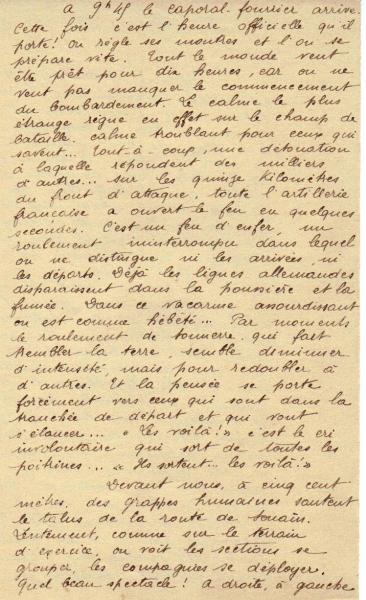 A 9h45 le caporal-fourrier arrive.
Cette fois c'est l'heure officielle qu'il
porte! On règle ses montres et l'on se
prépare vite. Tout le monde veut
être prêt pour dix heures, car on ne
veut pas manquer le commencement
du bombardement. Le calme le plus
étrange règne en effet sur le champ de
bataille. Calme troublant pour ceux qui
savent... Tout-à-coup, une détonation
à laquelle répondent des milliers
d'autres... sur les quinze kilomètres
du front d'attaque, toute l'artillerie
française a ouvert le feu en quelques
secondes. C'est un feu d'enfer, un
roulement ininterrompu dans lequel
on ne distingue ni les arrivées, ni
les départs. Déjà les lignes allemandes
disparaissent dans la poussière et la
fumée. Dans ce vacarme assourdissant
on est comme hébété... Par moments
le roulement de tonnerre, qui fait
trembler la terre, semble diminuer
d'intensité, mais pour redoubler à
d'autres. Et la pensée se porte
forcément vers ceux qui sont dans la
tranchée de départ et qui vont
s'élancer... "Les voilà!" c'est le cri
involontaire qui sort de toutes les
poitrines... "Ils sortent... les voilà!"
Devant nous, à cinq cent
mètres, des grappes humaines sautent
le talus de la route de Souain.
Lentement, comme sur le terrain
d'exercice, on voit les sections se
grouper, les compagnies se déployer.
Quel beau spectacle! A droite, à gauche